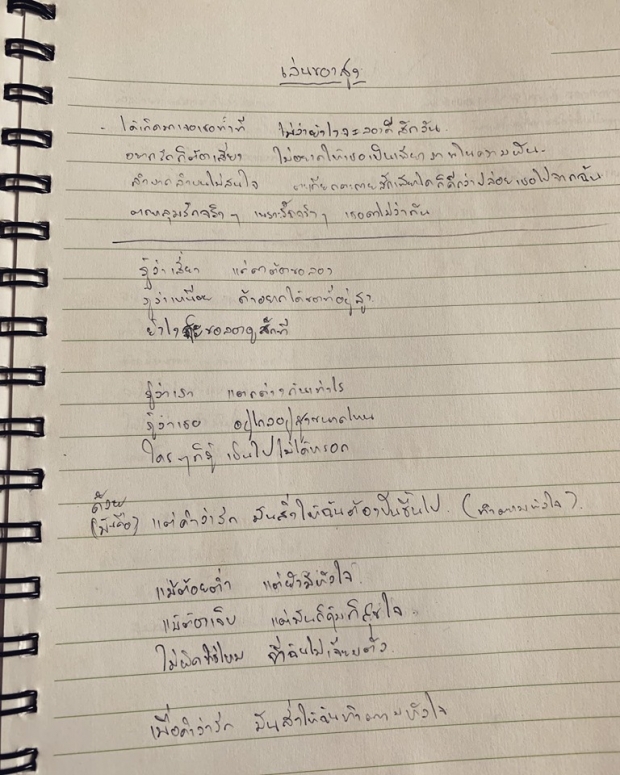 เล่นของสูง
ได้เกิดมาเจอเธอทั้งที ไม่ว่ายังไงจะลองดีสักวัน
อยากรักก็ต้องเสี่ยง ไม่อยากให้เธอเป็นเพียงภาพในความฝัน
ลำบากลำบนไม่สนใจ ตะเกียกตะกายสักเท่าไดก็ดีกว่าปล่อยเธอไปจากฉัน
ตกหลุมรักจริงๆ เพราะรักจริงๆ เธอคงไม่ว่ากัน
รู้ว่าเสี่ยง แต่คงต้องขอลอง
รู้ว่าเหนื่อย ถ้าอยากได้ของที่อยู่สูง
ยังไงจะขอลองดูสักที
รู้ว่าเรา แตกต่างกันเท่าไร
รู้ว่าเธอ อยู่ไกลอยู่สูงขนาดไหน
ใครๆก็รู้ เป็นไปไม่ได้หรอก
ด้วย
(มันคือ) แต่คำว่ารัก มันสั่งให้ฉันต้องปีนขึ้นไป. (ทำตามหัวใจ).
แม้ต้อยต่ำ แต่ยังมีหัวใจ.
แม้ต้องเจ็บ แต่มันก็คุ้มก็สุขใจ.
ไม่ผิดใช่ไหม ที่ฉันไม่เจียมตัว.
เมื่อคำว่ารัก มันสั่งให้ฉันทำตามหัวใจ